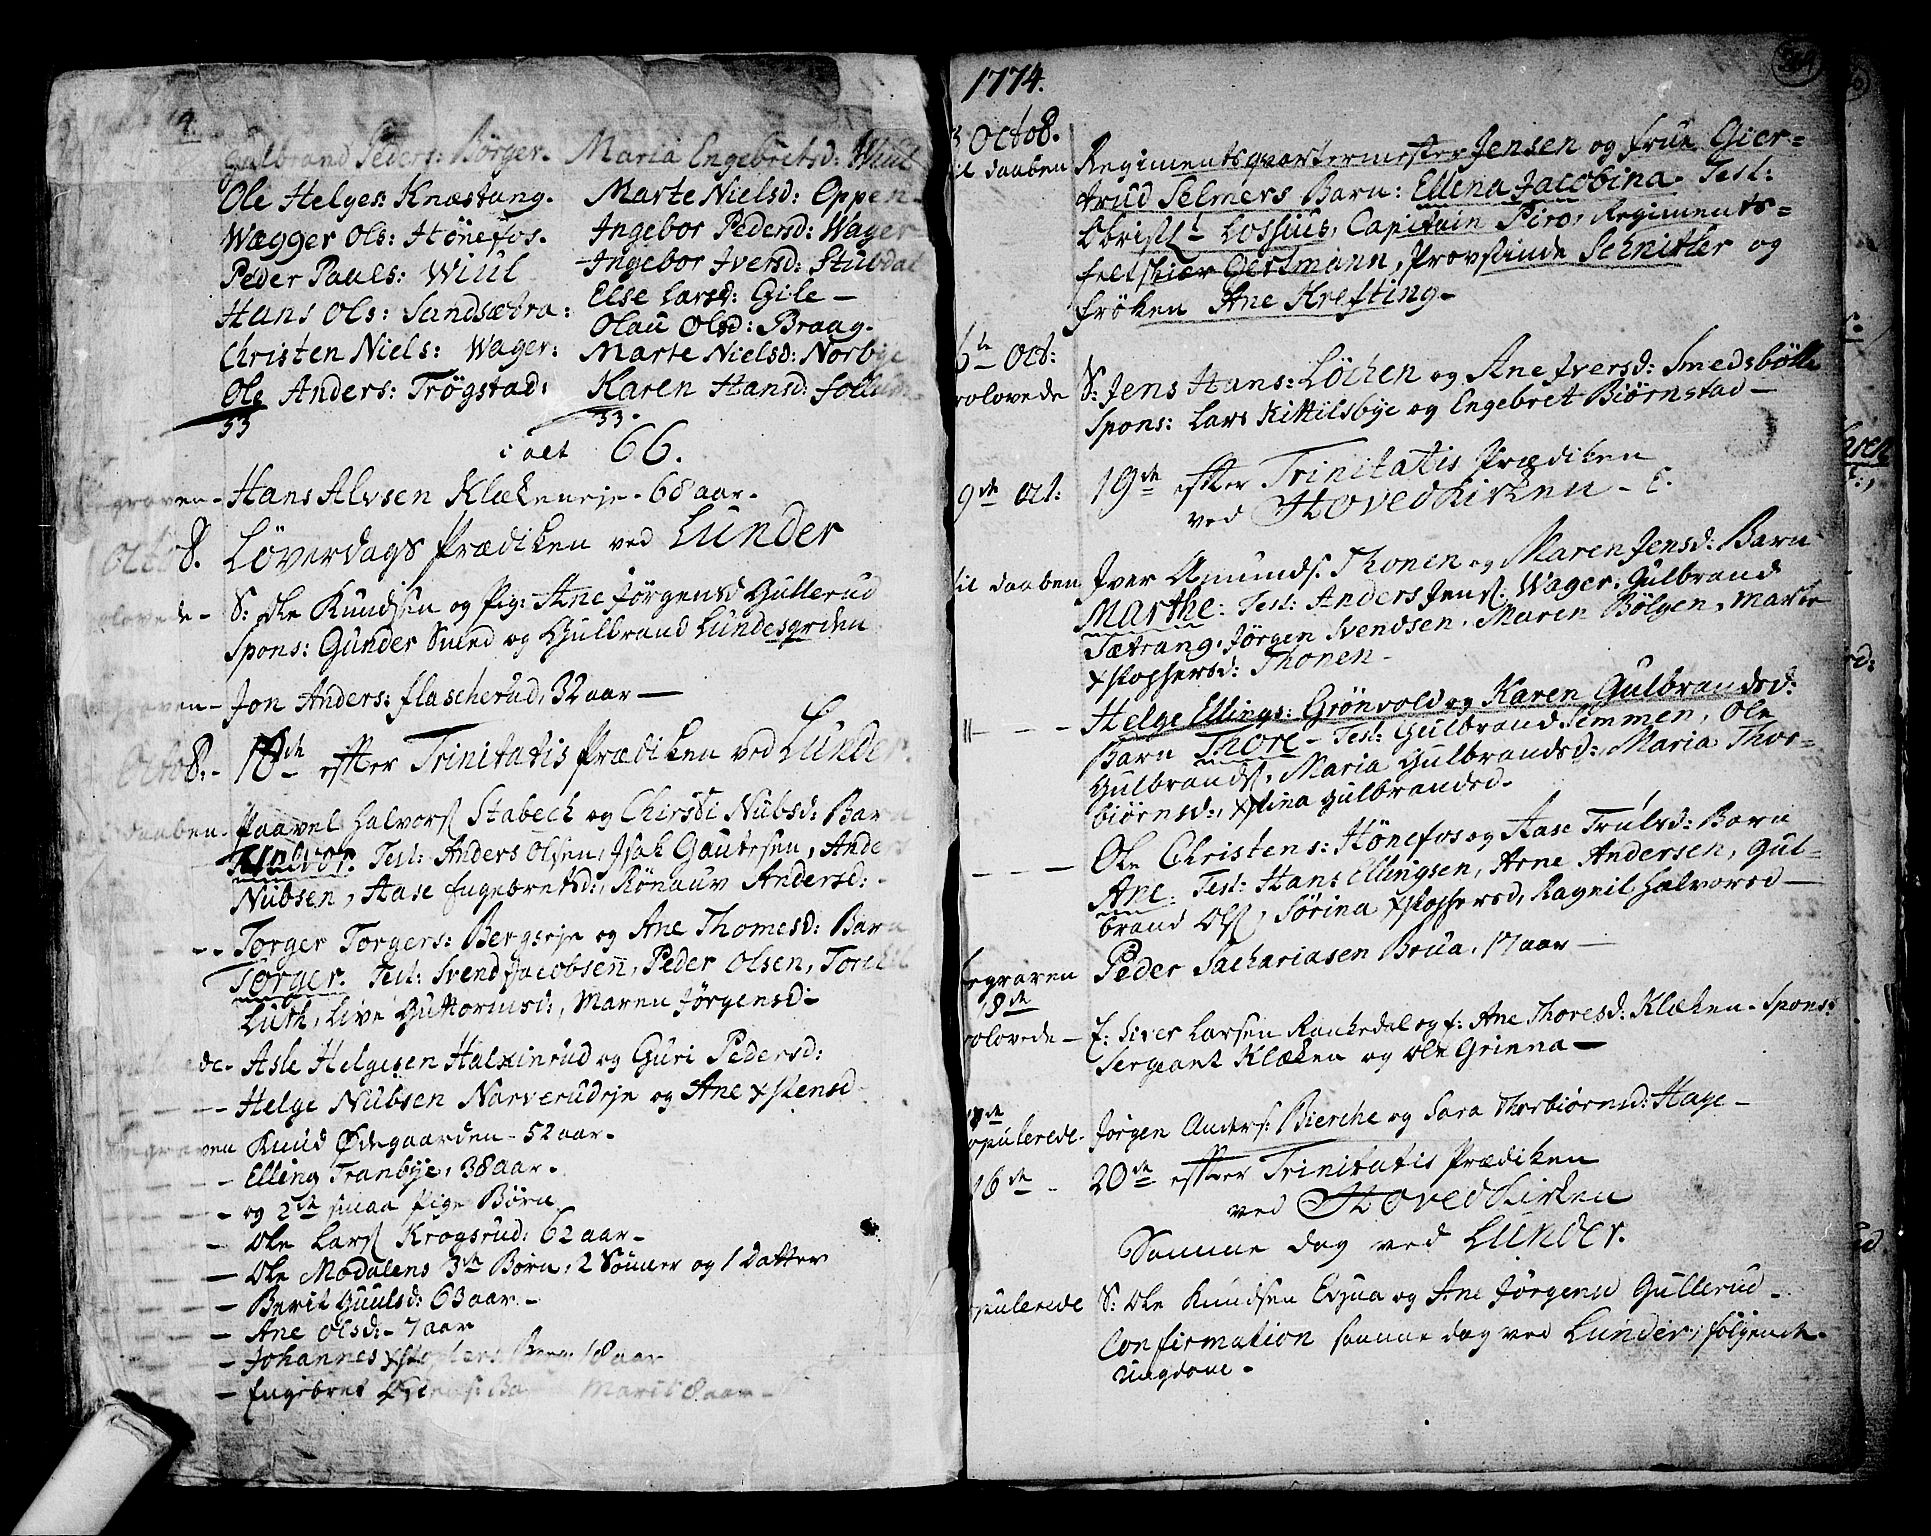 4.
Gulbrand Peders: Börger. Maria Engebretsd: Wiul
Ole Helges: Knæstang. Marte Nielsd: Oppen
Wægger Ols: Hönefos. Ingebor Pedersd: Wager
Peder Pauls: Wiul Ingebor Iversd: Stubdal
Hans Ols: Sandsætra: Else Larsd: Gile
Christen Niels: Wager: Olau Olsd: Braag.
Ole Anders: Trögstad: Marte Nielsd: Norbye
Karen Hansd:
33 33.
i alt 66.
graven - Hans Alvsen Klækeneje - 68 aar.
Octo8. Löverdags Prædiken ved Lunder
olovede - S: Ole Knudsen og Pig: Ane Jörgensd Gullerud
Spons: Gunder Smed og Gulbrand Lundesgrden
graven - Jon Anders: flascherud, 32 aar —
Octo8. - 18de efter Trinitatis Prædiken ved Lunder.
daaben - Paavel Halvors Stabeck og Chirsti Nubsd: Barn
Halvor. Test: Anders Olsen, Isak Gautesen, Anders
Nubsen, Aase Engebretsd:, Rönauv Andersd:
-- Torger Torgers: Bergseje og Ane Thomesd: Barn
Torger. Test: Svend Jacobsen, Peder Olsen, Torchil
Luth, Live Guttormsd:, Maren Jörgensd:
de - Asle Helgesen Halxinrud og Guri Pedersd:
-- Helge Nubsen Narverudeje og Ane xstensd
Begraven Knud Ödegaarden - 52 aar.
- Elling Tranbye, 38 aar.
- og 2de smaa Pige Börn
- Ole Lars Krogsrud: 62 aar -
- Ole Modalens 3de Börn, 2 Sönner og 1 Datter
- Berit Guulsd: 63 aar -
- Ane Olsd: - 7 aar
- Johannes 18 aar
- Engebret Marit 8 aar -
1774.
3 Octo8.
til daaben Regimentsqvartermester Jensen og frue Gier-
trud Selmers Barn: Ellena Jacobina. Test:
Obristl Lossius, Capitain Piro, Regiments=
feltskiær Gerstmann, Provstinde Schnitler og
fröken Ane Krefting -
6te Oct:
rolovede S: Jens Hans: Löchen og Ane Iversd: Smedsbölle
Spons: Lars Kittilsbye og Engebret Biörnstad —
9de Oct: 19de efter Trinitatis Prædiken
ved Hovedkirken -
til daaben Iver Amunds. Thonen og Maren Jensd: Barn
Marthe: Test: Anders Jens. Wager, Gulbrand
Sætrang, Jörgen Svendsen, Maren Bölgen, Marie
xstophersd: Thonen -
- - - Helge Ellings: Grönvold og Karen Gulbrandsd:
Barn Thore - Test: Gulbrand Semmen, Ole
Gulbrands, Maria Gulbrandsd:, Maria Thor-
biörnsd:, xstina Gulbrandsd.
- - - Ole Christens: Hönefos og Aase Trulsd: Barn
Ane: Test: Hans Ellingsen, Arne Andersen, Gul-
brand Ols, Sörina xstophersd, Ragnil Halvorsd —
Begraven Peder Sachariasen Brua, 17 aar —
18de
rolovede - E: Siver Larsen Rankedal og f: Ane Thoresd: Klæken. Spons:
Sergeant Klæken og Ole Grinna —
opulerede - Jörgen Anders: Bierche og Sara Thorbiörnsd: Hage -
16de - 20de efter Trinitatis Prædiken
ved Hovedkirken
Samme dag ved Lunder.
opulerede S: Ole Knudsen og Ane Jörgensd Gullerud -
Confirmation samme dag ved Lunder, fölgende
Ungdom -